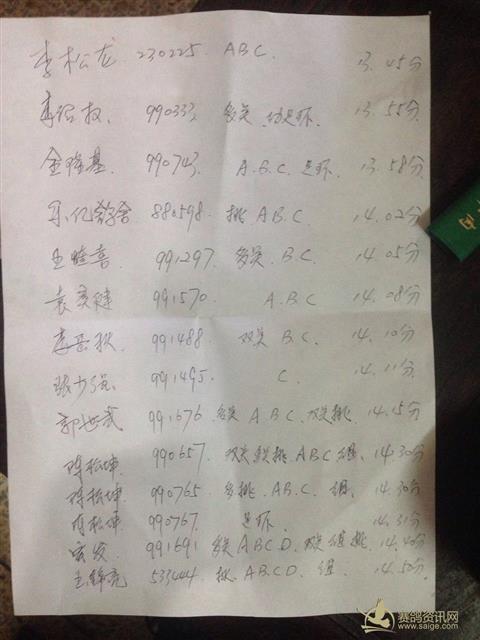 李松龙 230225 ABC. 13.45分
990333 多关 足环. 13.55分
金 基 990743 A.B.C. 足环. 13.58分
乐亿鸽舍 880598. 挑 A.B.C. 14.02分
王 喜 991297. 多关. B.C. 14.05分
袁 健 991570. A.B.C 14.08分
李 秋 991488 双关 B.C. 14.10分
张少强 991495 C. 14.11分
郭世武 991676 多关 A.B.C. 双关挑. 14.15分
陈松坤 990657. 双关 挑.ABC 组、14.30分
陈松坤 990765 多挑. A.B.C. 组. 14.30分
陈松坤 990767. 足环. 14.31分
发 991691 多关ABCD. 双关组挑. 14.40分
王 亮 533444 挑.ABCD. 组. 14.50分
赛鸽资讯网
www.saige.com